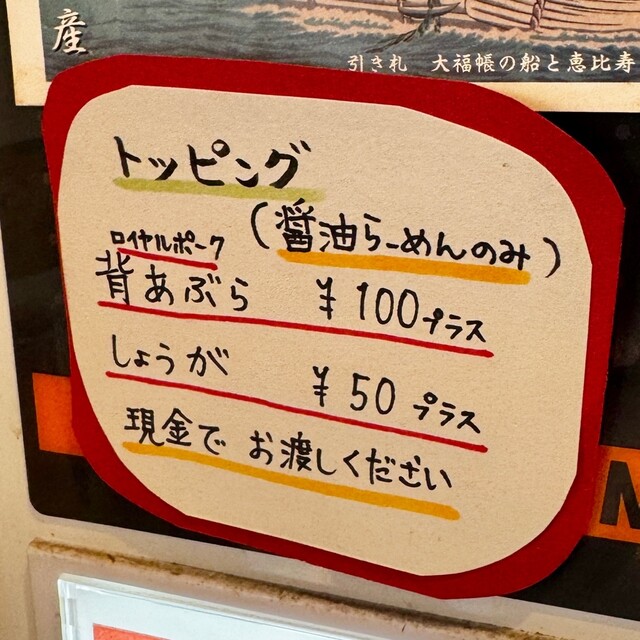 産
引き札 大福帳の船と恵比寿
トッピング
(醤油らーめんのみ)
ロイヤルポーク
背あぶら ¥100プラス
しょうが ¥50プラス
現金で お渡しください